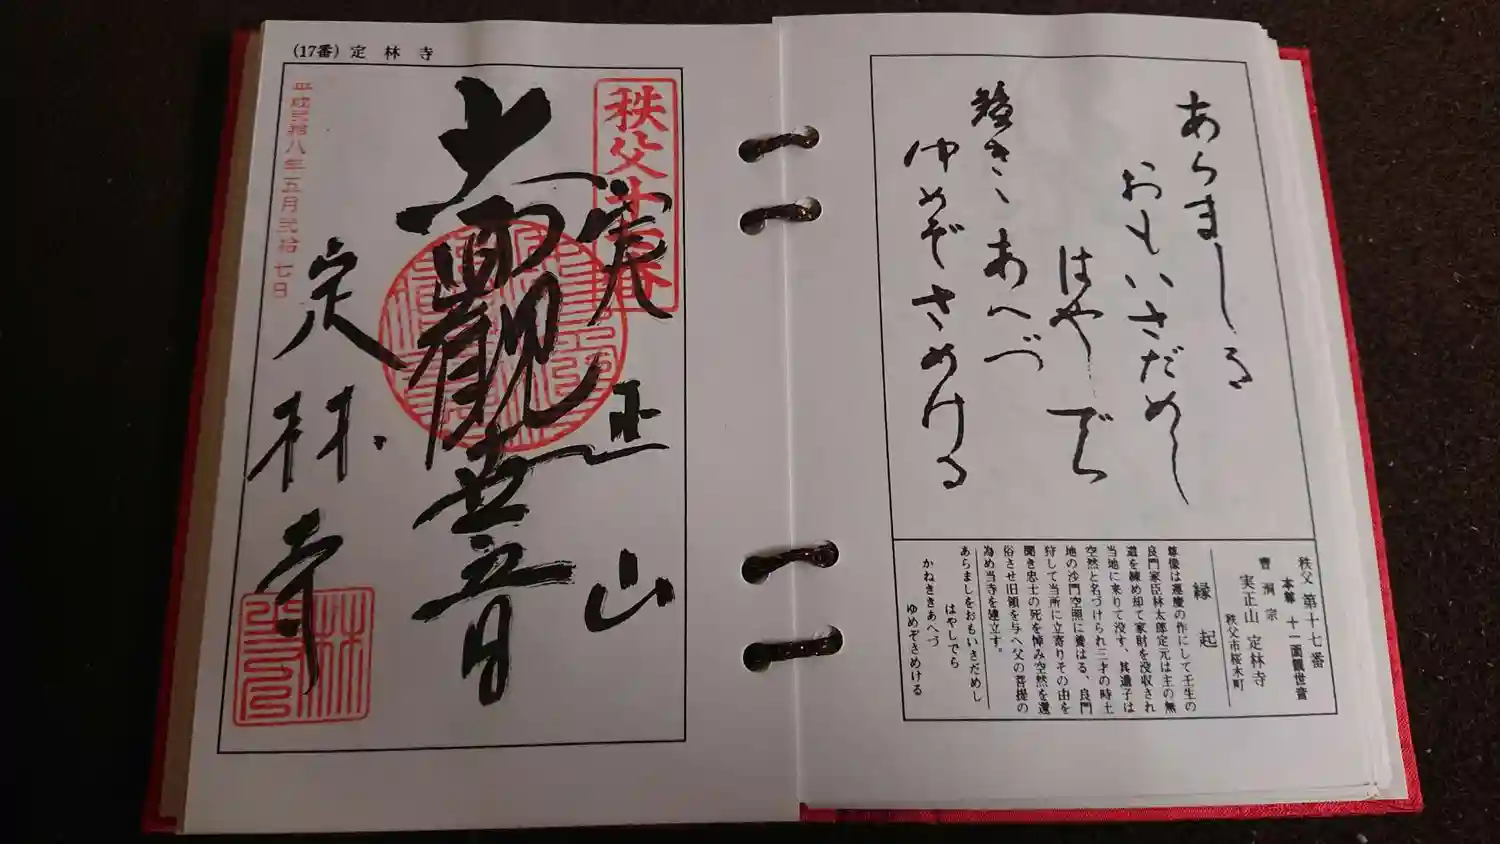 あらましを
おもいさだめし
はやしでら
鐘きゝあへづ
ゆめぞさめける
秩父 第十七番
本尊 十一面観世音
曹洞宗
実正山 定林寺
秩父市桜木町
縁起
尊像は運慶の作にして壬生の
良門家臣林太郎定元は主の無
道を練め却て家財を没収され
当地に来りて没す、其遺子は
空然と名づけられ三才の時土
地の沙門空照に養はる、良門
狩して当所に立寄りその由を
聞き忠士の死を悼み空然を還
俗させ旧領を与へ父の菩提の
為め当寺を建立す。
あらましをおもいさだめし
はやしでら
かねききあへづ
ゆめぞさめける
(17番) 定林寺
秩父十七番
実正山
十一面観世音
定林寺
平成弐拾八年五月弐拾七日